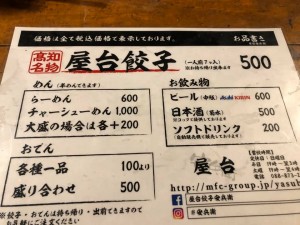 価格は全て税込価格で表示しております。
お品書き
高知名物 屋台餃子 (一人前7ヶ入) 500
めん
らーめん 600
チャーシューめん 1,000
大盛の場合は各+200
おでん
各種一品 100より
盛り合わせ 500
お飲み物
ビール(中瓶) Asahi KIRIN 600
日本酒 500
ソフトドリンク 200
屋台
http://mfc-group.jp/yasub
屋台餃子安兵衛
@安兵衛
※餃子・おでんは持ち帰り・出前できますので
お気軽にご注文ください